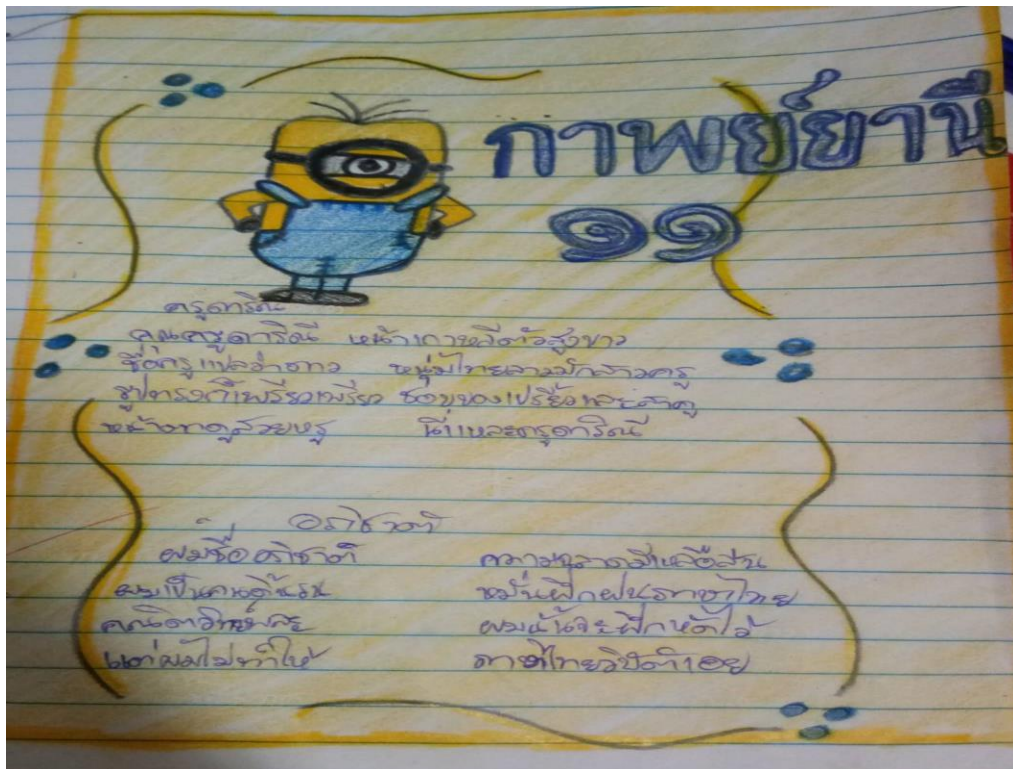 กาพย์ยานี
๑๑
ครูดาริณี
คุณครูดาริณี หน้าเกาหลีตัวสูงขาว
ชื่อครูแปลว่าดาว หนุ่มไทยลาวมักสาวครู
รูปทรงก็เพรียวเพรียว ชอบของเปรี้ยวและ
หน้าตาดูสวยหรู นี่แหละครูดาริณี
อภิชาติ
ผมชื่ออภิชาติ ความฉลาดมีเหลือล้น
ผมเป็นคนดิ้นรน หมั่นฝึกฝนภาษาไทย
คณิตวิทย์ ผมนั้นจะฝึกหัดไว้
แต่ผมไม่ทำให้ ภาษาไทยวิบัติเอย